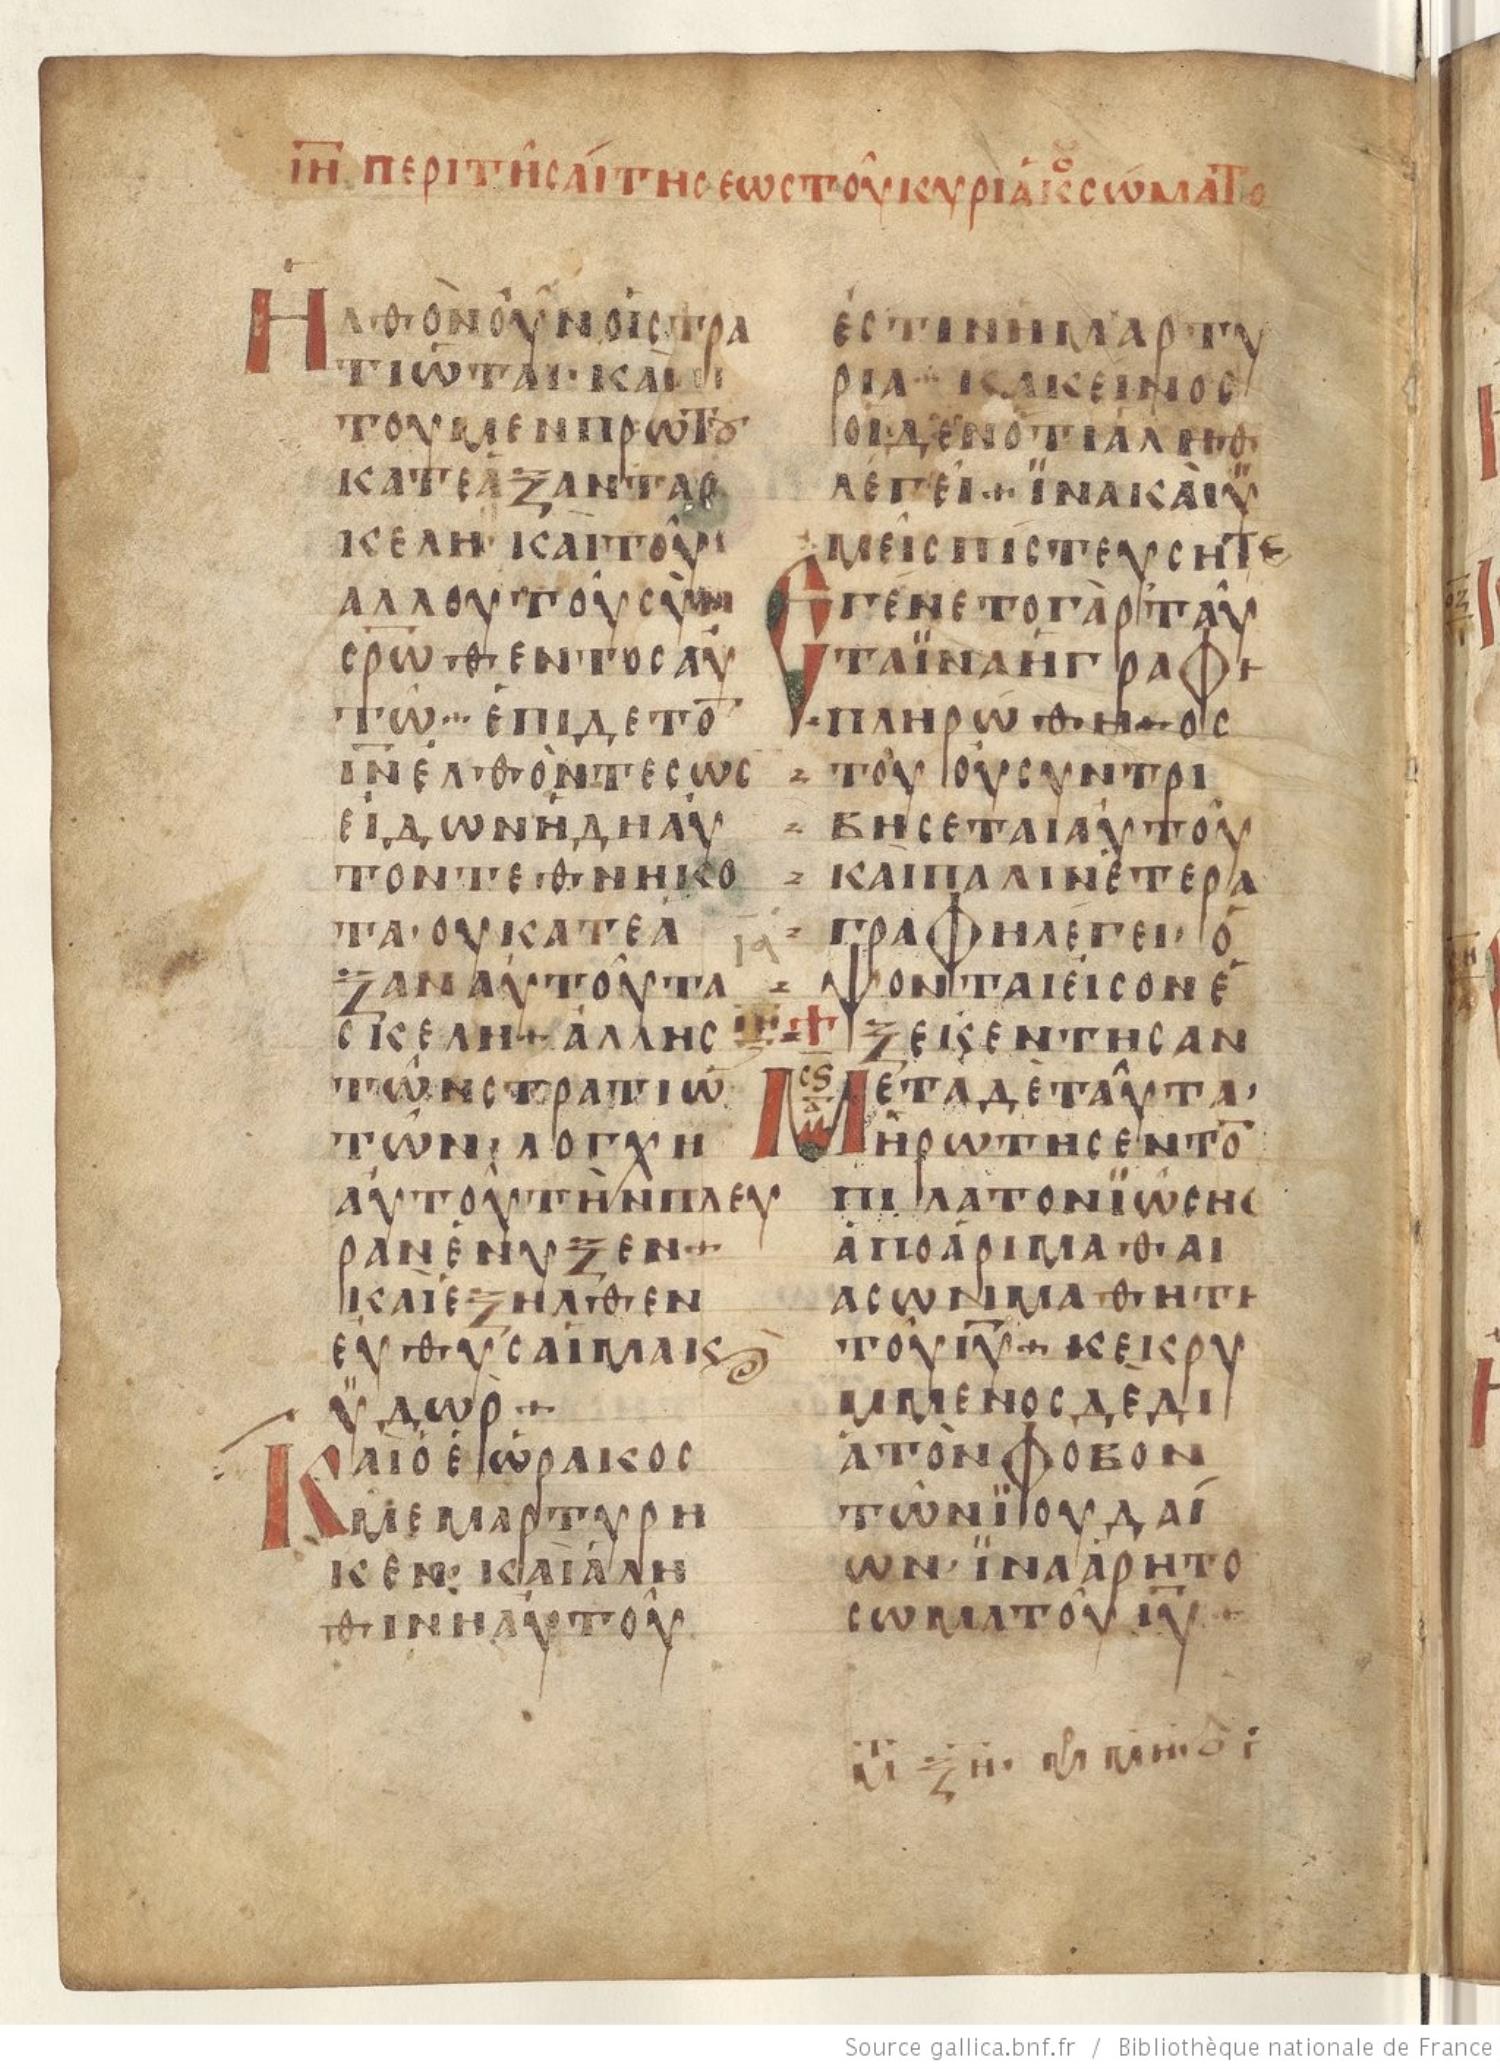 ΙΗ ΠΕΡΙ ΤΗϹ ΑΙΤΗϹΕωϹ ΤΟΥ ΚΥΡΙΑΚȣ ϹωΜΑΤο
ΗΛΘΟΝ ΟΥΝ ΟΙ ϹΤΡΑ
ΤΙωΤΑΙ· ΚΑΙ
ΤΟΥ ΜΕΝ ΠΡωΤȣ
ΚΑΤΕΑΞΑΝ ΤΑ Ϲ
ΚΕΛΗ· ΚΑΙ ΤΟΥ
ΑΛΛΟΥ ΤΟΥ ϹΥΝ
ϹΡωΘΕΝΤΟϹ ΑΥ
Τω·· ΕΠΙ ΔΕ ΤΟ̅
Ι̅Ν̅ ΕΛΘΟΝΤΕϹ ωϹ
ΕΙΔωΝ ΗΔΗ ΑΥ
ΤΟΝ ΤΕΘΝΗΚΟ
ΤΑ· ΟΥ ΚΑΤΕΑ
ΞΑΝ ΑΥΤΟΥ ΤΑ
ϹΚΕΛΗ + ΑΛΛ ΗϹ
ΤωΝ ϹΤΡΑΤΙω
ΤωΝ· ΛΟΓΧΗ
ΑΥΤΟΥ ΤΗΝ ΠΛΕΥ
ΡΑΝ ΕΝΥΞΕΝ +
ΚΑΙ ΕΞΗΛΘΕΝ
ΕΥΘΥϹ ΑΙΜΑ Κϛ
ΥΔωΡ +
ΚΑΙ Ο ΕωΡΑΚΟϹ
ΜΕΜΑΡΤΥΡΗ
ΚΕΝ· ΚΑΙ ΑΛΗ
ΘΙΝΗ ΑΥΤΟΥ
ΕϹΤΙΝ Η ΜΑΡΤΥ
ΡΙΑ·· ΚΑΚΕΙΝΟϹ
ΟΙΔΕΝ ΟΤΙ ΑΛΗΘ
ΛΕΓΕΙ + ΪΝΑ ΚΑΙ Ϋ
ΜΕΙϹ ΠΙϹΤΕΥϹΗΤΕ
ΕΓΕΝΕΤΟ ΓΑΡ ΤΑΥ
ΤΑ ΪΝΑ Η ΓΡΑΦΗ
ΠΛΗΡωΘΗ + ΟϹ
ΤΟΥ ΟΥ ϹΥΝΤΡΙ
ΒΗϹΕΤΑΙ ΑΥΤΟΥ
ΚΑΙ ΠΑΛΙΝ ΕΤΕΡΑ
ΓΡΑΦΗ ΛΕΓΕΙ· Ο
ΨΟΝΤΑΙ ΕΙϹ ΟΝ Ε
ΞΕΚΕΝΤΗϹΑΝ
Ϲϛ
Α
ΜΕΤΑ ΔΕ ΤΑΥΤΑ·
ΗΡωΤΗϹΕΝ ΤΟ̅
ΠΙΛΑΤΟΝ ΪωϹΗϹ
Ο ΑΠΟ ΑΡΙΜΑΘΑΙ
ΑϹ ωΝ ΜΑΘΗΤΗ
ΤΟΥ Ι̅Υ̅ + ΚΕΚΡΥ
ΜΜΕΝΟϹ ΔΕ ΔΙ
Α ΤΟΝ ΦΟΒΟΝ
ΤωΝ ΪΟΥΔΑΙ
ωΝ· ΪΝΑ ΑΡΗ ΤΟ
ϹωΜΑ ΤΟΥ Ι̅Υ̅ +
Source gallica.bnf.fr / Bibliothèque nationale de France